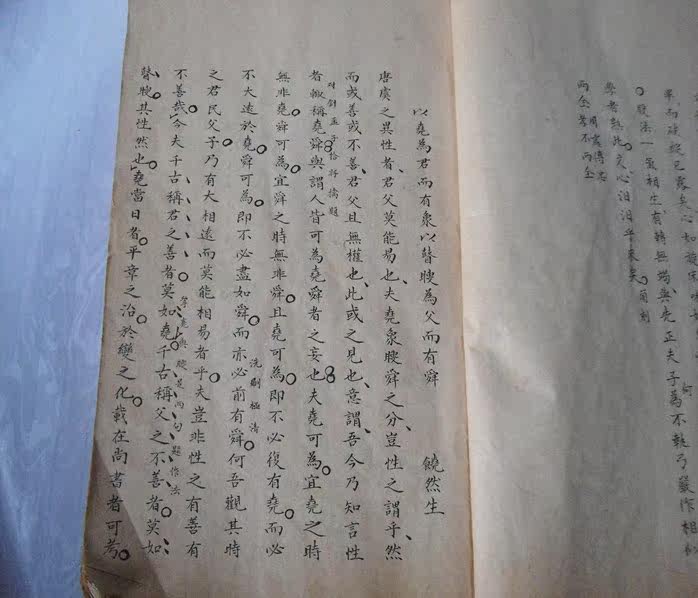 股法一氣相生有轉無竭與先正夫子為不執弓嚴作相似
學者熟此文心汩汩乎來矣
以堯為君而有象以瞽瞍為父而有舜 饒然生
唐虞之異性者君父莫能易也夫堯象瞍舜之分豈性之謂乎然
而或善或不善君父且無權也此或之見也意謂吾今乃知言性
對針孟子恰好擒題
者輒稱堯舜與謂人皆可為堯舜者之妄也夫堯可為宜堯之時
無非堯舜可為宜舜之時無非舜且堯可為即不必復有堯而必
洗刷極清
不大遠於堯舜可為即不必盡如舜而亦必前有舜何吾觀其時
之君民父子乃有大相遠而莫能相易者乎夫豈非性之有善有
不善哉今夫千古稱君之善者莫如堯千古稱父之不善者莫如
堯與瞍是兩句題作法
瞽瞍其性然也堯當日者平章之治於變之化載在尚書者可考